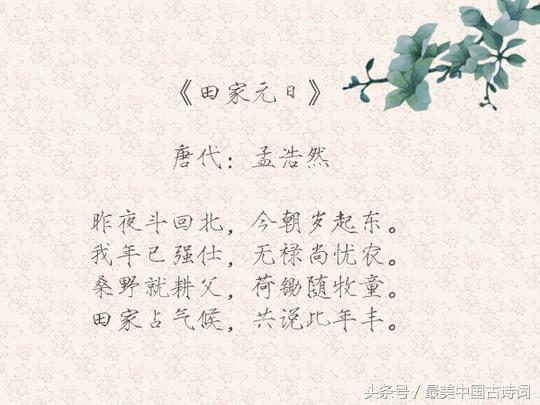 《田家元日》
唐代：孟浩然
昨夜斗回北，今朝岁起东。
我年已强仕，无禄尚忧农。
桑野就耕父，荷锄随牧童。
田家占气候，共说此年丰。
头条号／最美中国古诗词